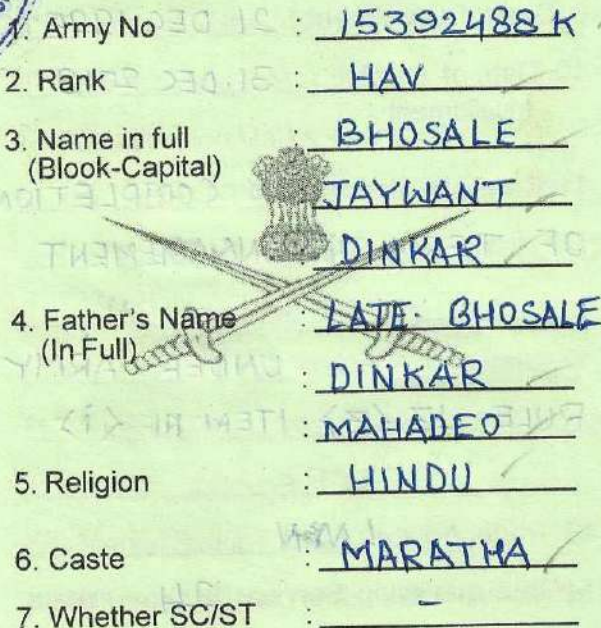 1. Army No : 15392488 K
2. Rank : HAV
3. Name in full : BHOSALE
(Blook-Capital)
: JAYWANT
: DINKAR
4. Father's Name : LATE. BHOSALE
(In Full)
: DINKAR
: MAHADEO
5. Religion : HINDU
6. Caste : MARATHA
7. Whether SC/ST : -